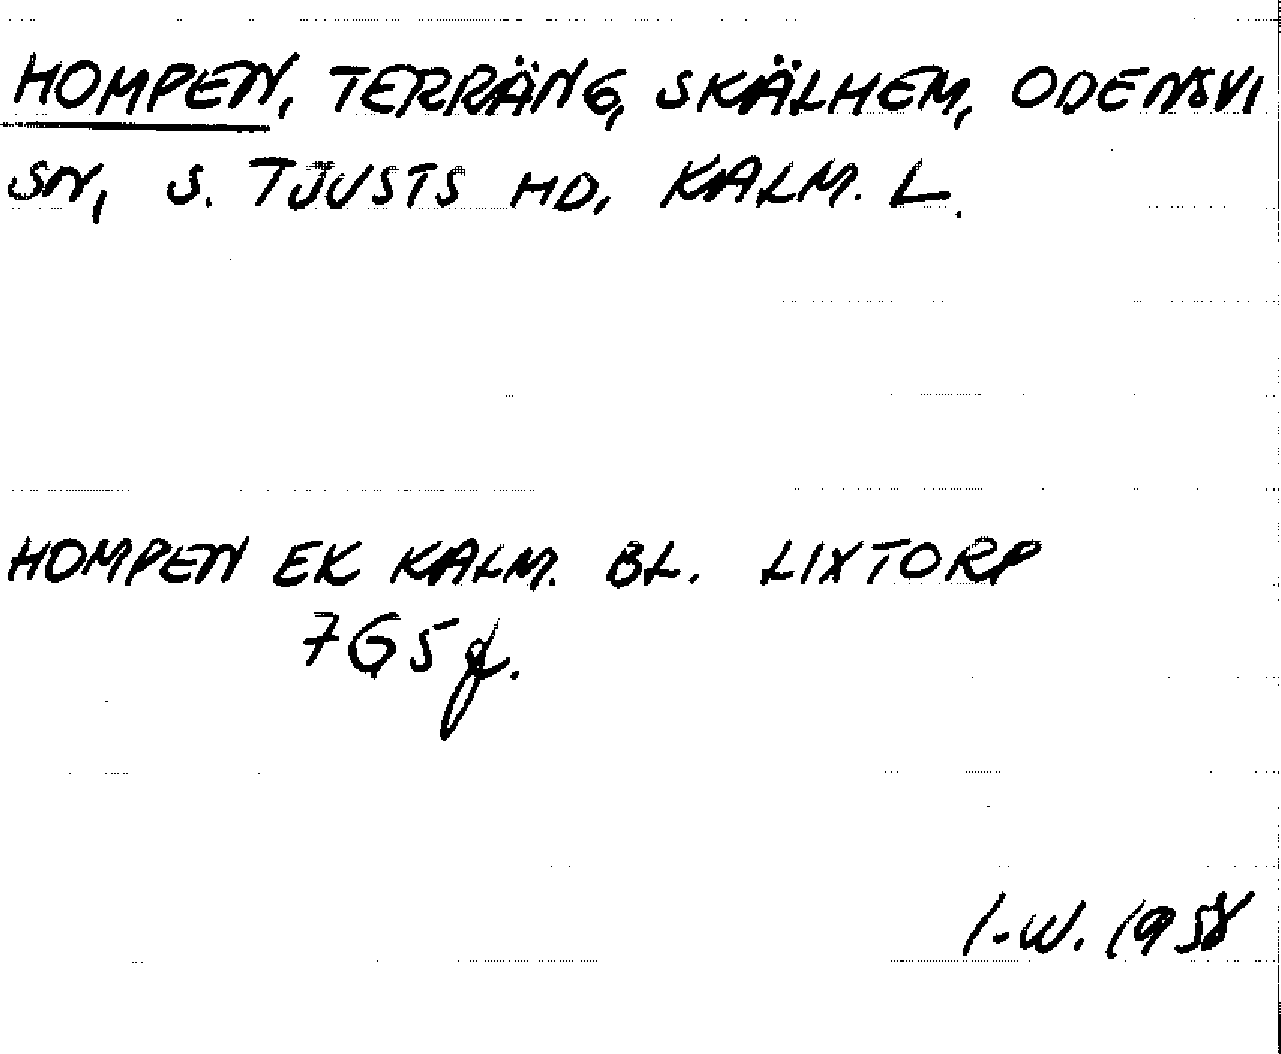 HOMPEN, TERRÄNG, SKÄLHEM, ODENSVI
SN, S. TJUSTS HD, KALM. L.
HOMPEN EK KALM. BL. LIXTORP
7G5f.
I-W. 1958